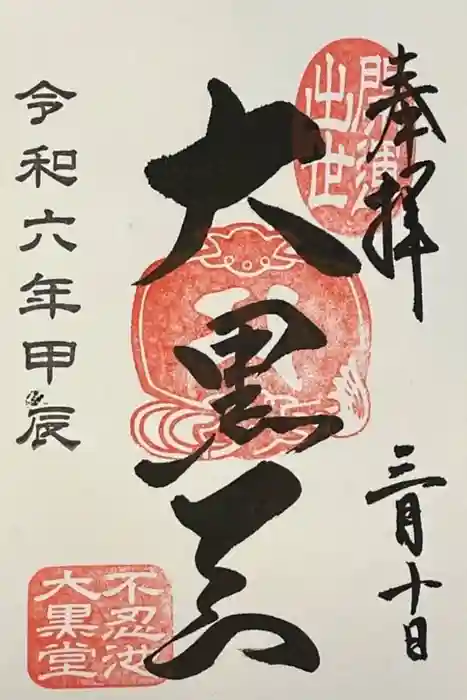 奉拝
三月十日
開運
出世
大黒天
不忍池
大黒堂
令和六年甲辰